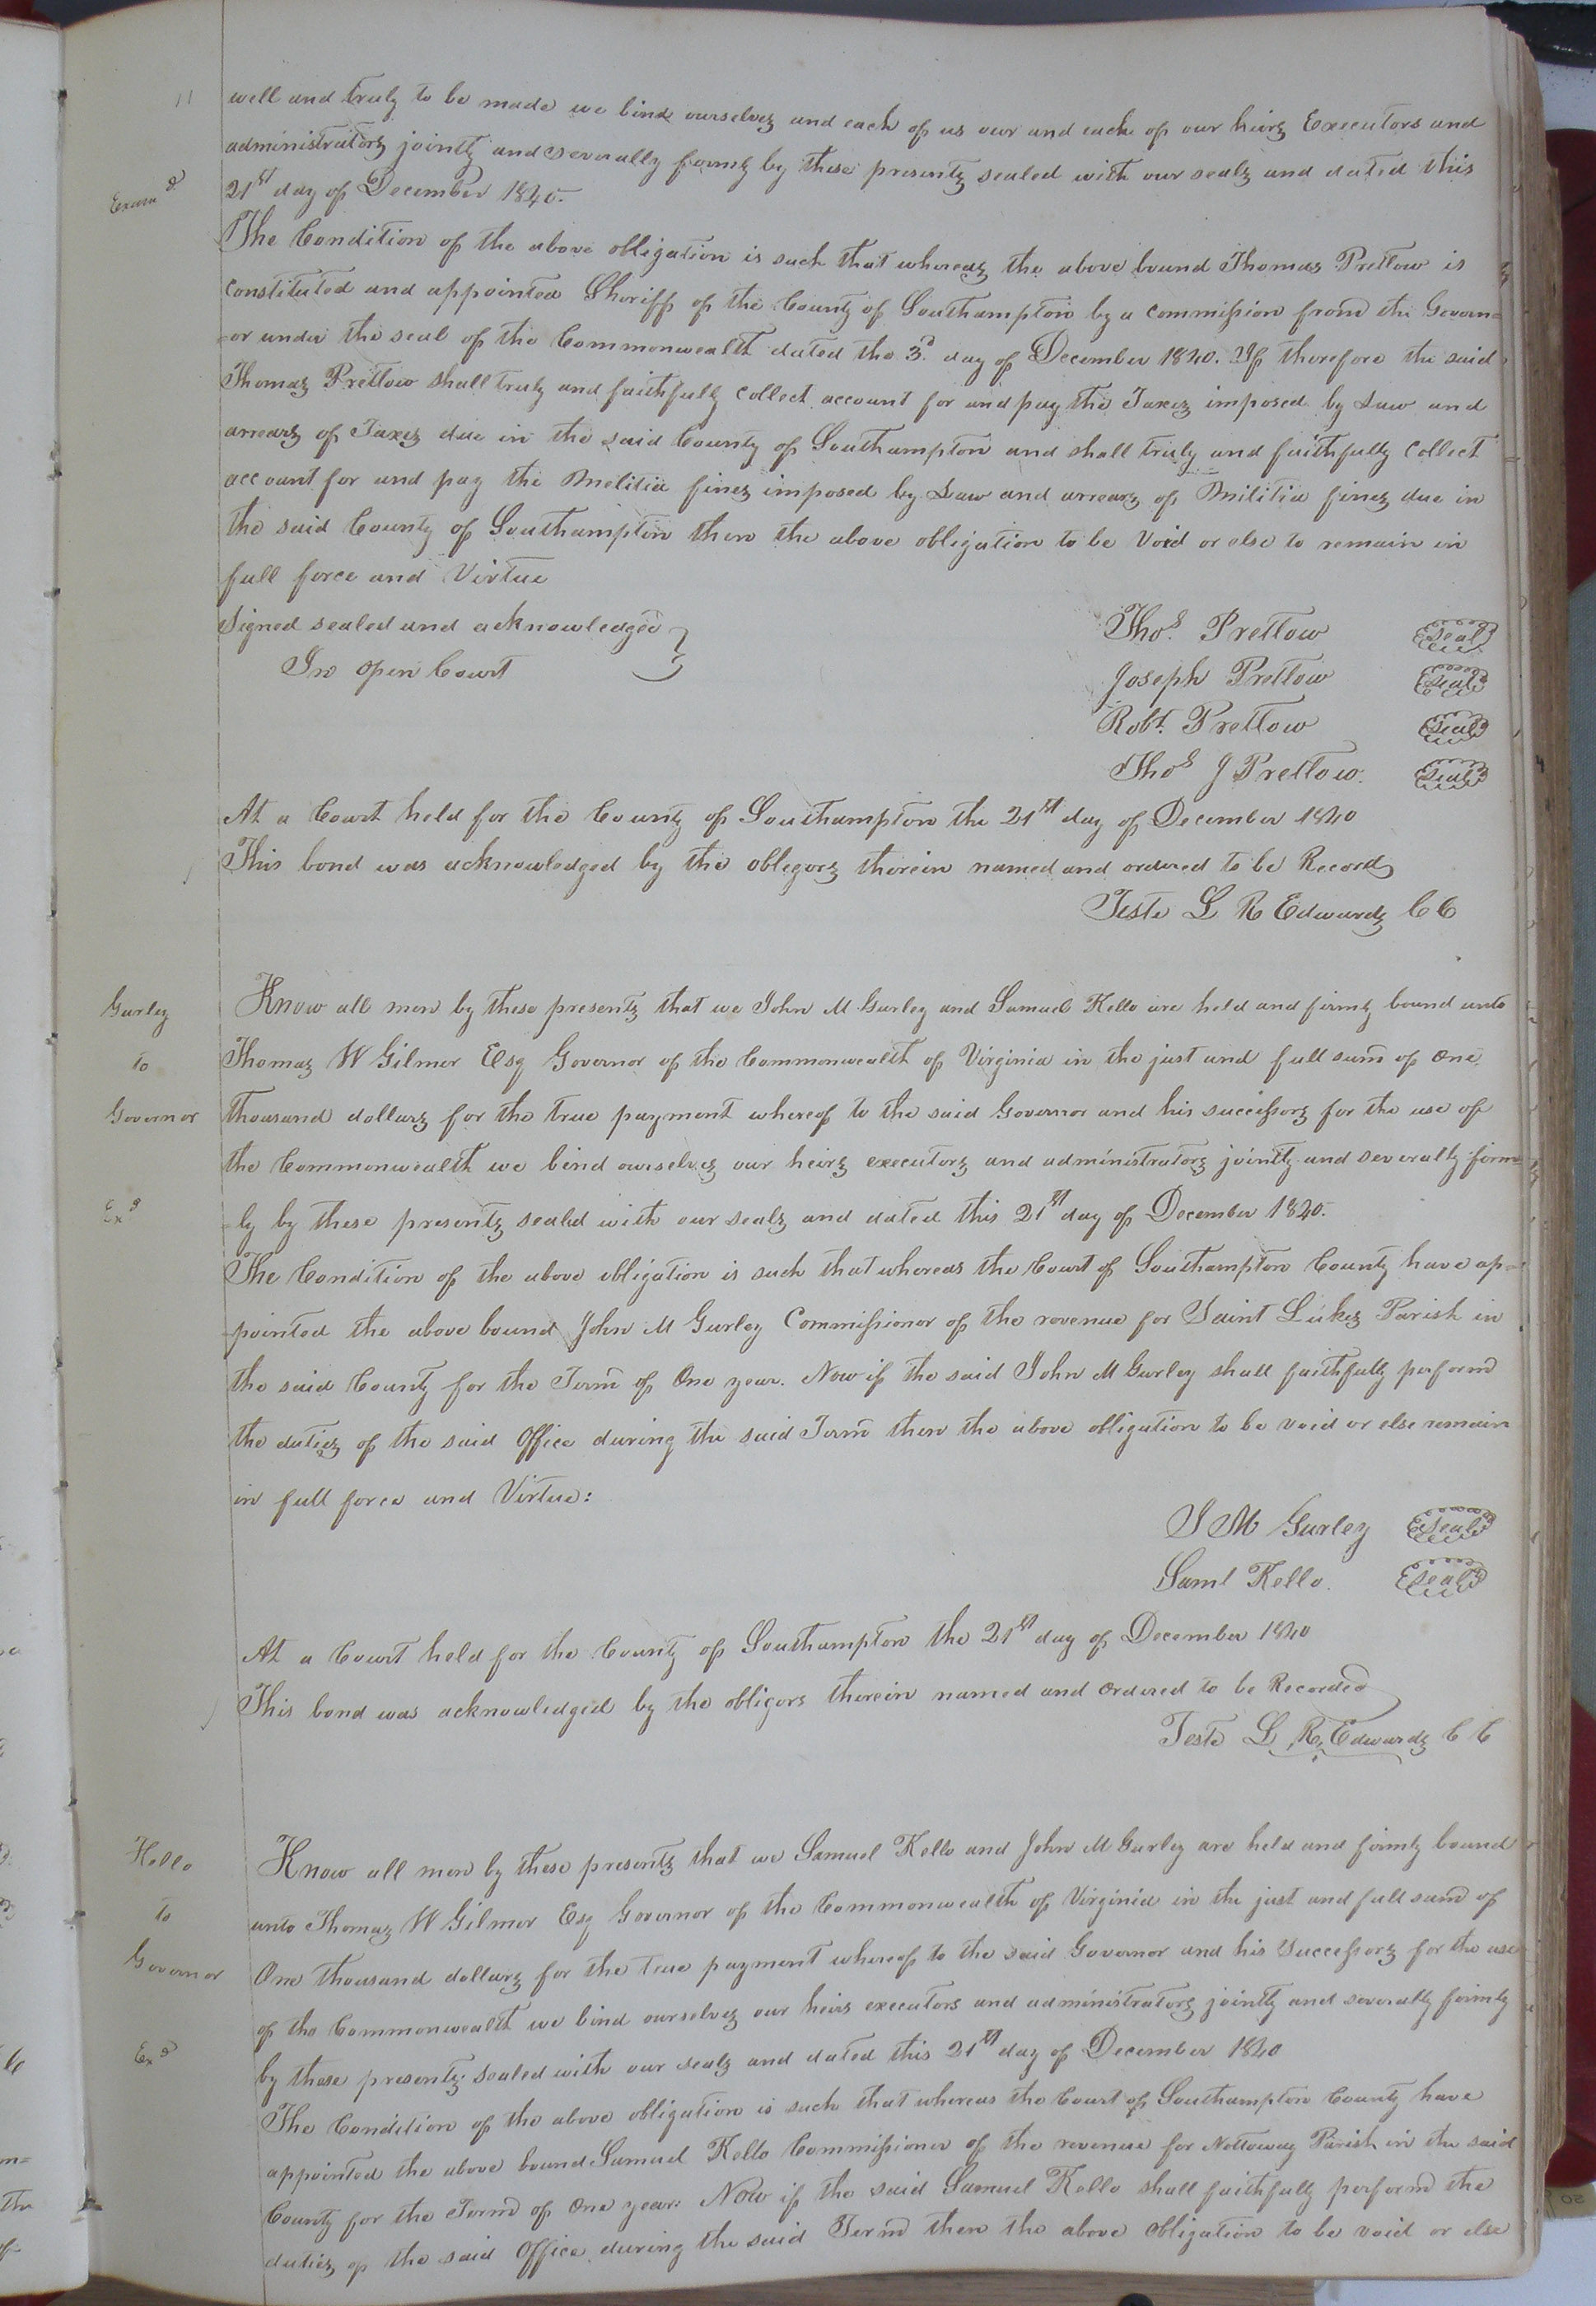 well and truly to be made we bind ourselves and each of us our and each of our heirs Executors and
administrators jointly and severally firmly by these presents sealed with our seals and dated this
Exam^d
21^st day of December 1840.
The Condition of the above obligation is such that whereas the above bound Thomas Pretlow is
constituted and appointed Sheriff of the County of Southampton by a commission from the Govern=
=or under the seal of the Commonwealth dated the 3^d. day of December 1840. If therefore the said
Thomas Pretlow shall truly and faithfully collect account for and pay the Taxes imposed by Law and
arrears of Taxes due in the said County of Southampton and shall truly and faithfully collect
account for and pay the Melitia fines imposed by Law and arrears of Militia fines due in
the said County of Southampton then the above obligation to be Void or else to remain in
full force and Virtue
Signed sealed and acknowledged }
In open Court
Tho^s. Pretlow Seal
Joseph Pretlow Seal
Rob^t. Pretlow Seal
Tho^s J Pretlow. Seal
At a Court held for the County of Southampton the 21^st day of December 1840
This bond was acknowledged by the oblegors therein named and ordered to be Record
Teste L R Edwards C C
Gurley
to
Governor
Ex^d
Know all men by these presents that we John M Gurley and Samuel Kello are held and firmly bound unto
Thomas W Gilmer Esq Governor of the Commonwealth of Virginia in the just and full sum of one
thousand dollars for the true payment whereof to the said Governor and his successors for the use of
the Commonwealth we bind ourselves our heirs executors and administrators jointly and severally firm=
=ly by these presents sealed with our seals and dated this 21^st day of December 1840.
The Condition of the above obligation is such that whereas the Court of Southampton County have ap=
=pointed the above bound John M Gurley Commissioner of the revenue for Saint Lukes Parish in
the said County for the Term of One year. Now if the said John M Gurley shall faithfully perform
the duties of the said Office during the said Term then the above obligation to be void or else remain
in full force and Virtue:
J M Gurley Seal
Saml Kello. Seal
At a Court held for the County of Southampton the 21^st day of December 1840
This bond was acknowledged by the obligors therein named and Ordered to be Recorded
Teste L R, Edwards C C
Kello
to
Governor
Ex^d
Know all men by these presents that we Samuel Kello and John M Gurley are held and firmly bound
unto Thomas W Gilmer Esq Governor of the Commonwealth of Virginia in the just and full sum of
One thousand dollars for the true payment whereof to the said Governor and his Successors for the use
of the Commonwealth we bind ourselves our heirs executors and administrators jointly and severally firmly
by these presents sealed with our seals and dated this 21^st day of December 1840
The Condition of the above obligation is such that whereas the Court of Southampton County have
appointed the above bound Samuel Kello Commissioner of the revenue for Nottoway Parish in the said
County for the Term of One year. Now if the said Samuel Kello shall faithfully perform the
duties of the said Office during the said Term then the above Obligation to be void or else